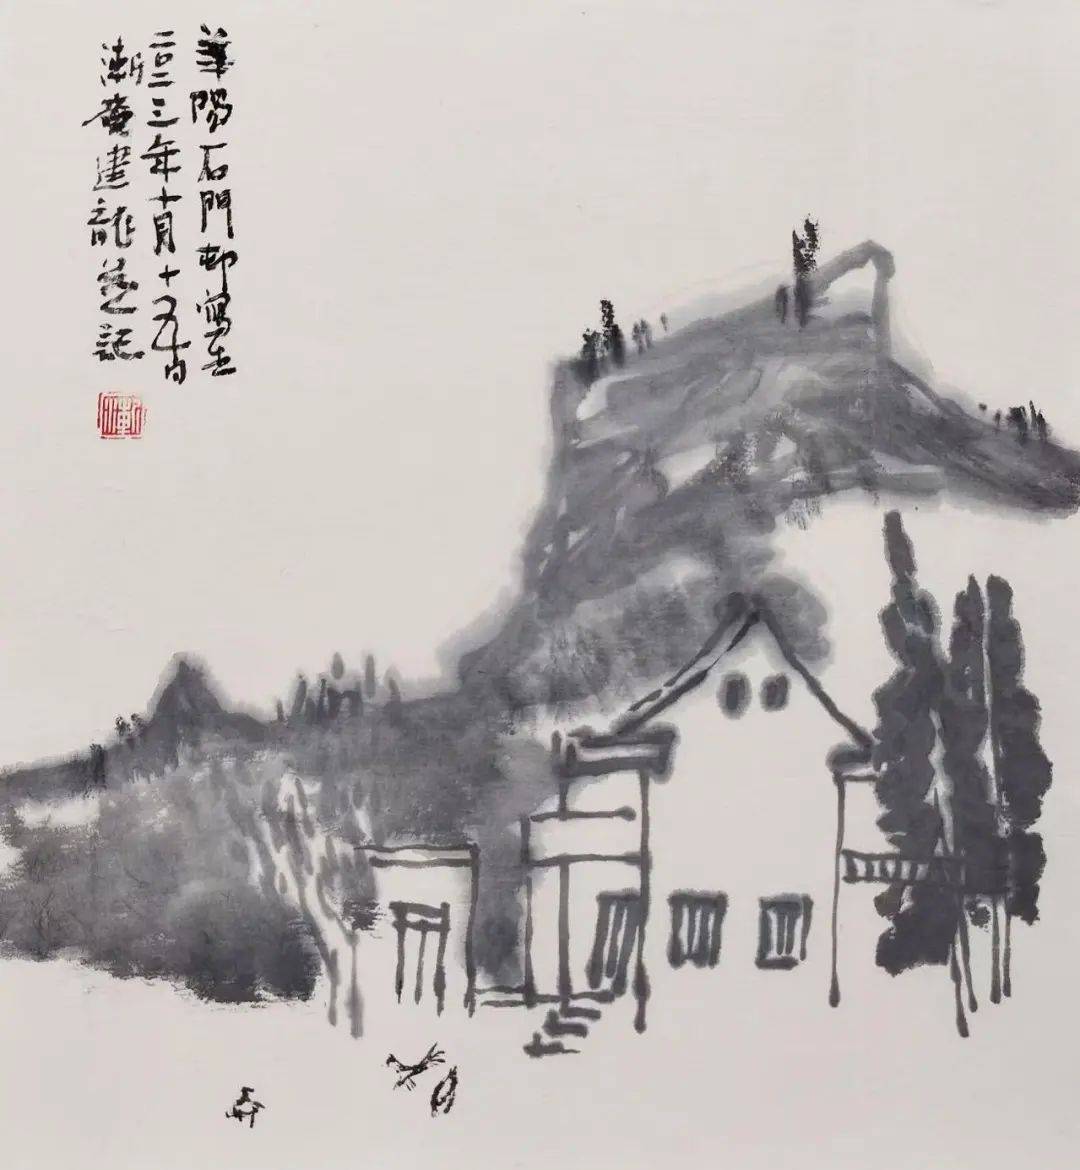 華陽石門邨寫生
二〇二三年十月十五日
漸建龍並記